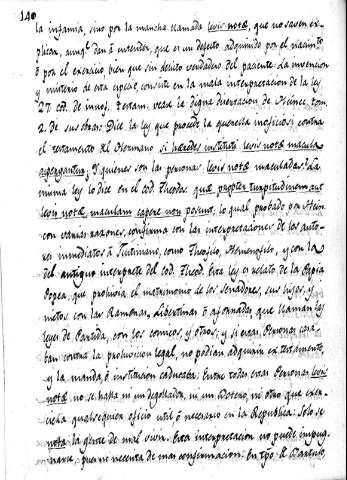 140
la infamia, sino por la mancha llamada levis notæ, que no saven ex-
plicar, aunq.e dan á entender, que es un defecto adquirido por el nacim.to
ó por el exercicio, bien que sin delito verdadero del paciente. La invencion
y misterio de esta especie, consiste en la mala interpretacion de la ley
27. cod. de inoff. testam. vean la digna disertacion de Heinec. tom.
2. de sus obras. Dice la ley que procede la querella inoficiosi contra
el testamento del Hermano si hæredes instituti levis notæ macula
aspergantur; Y quienes son las personas levis notæ maculadas? La
misma ley lo dice en el cod. Theodos. quæ propter turpitudinem aut
levis notæ maculam capere non possunt, lo qual probado por Hein.
con varias razones, confirma con las interpretaciones de los auto-
res inmediatos á Justiniano, como Theofilo, y con la
del antiguo interprete del cod. Theod. Esta ley es relato de la Papia
Popea, que prohivia el matrimonio de los senadores, sus hijos, y
nietos con las Rameras, libertinas ó aforradas que llaman las
leyes de Partida, con los comicos, y otros; y si estas Personas casa-
ban contra la prohivicion legal, no podian adquirir ex testamento,
y la manda, ó institucion caducaba. Entre todas estas Personas levis
notæ no se halla ni un degollador, ni un Botero, ni otro que exer-
cucha qualesquiera oficio util ó necesario en la Republica. Solo se
nota la gente de mal vivir. Esta interpretacion no puede impug-
narse, pues no necesita de mas confirmacion. En tpo. de Bartulo,